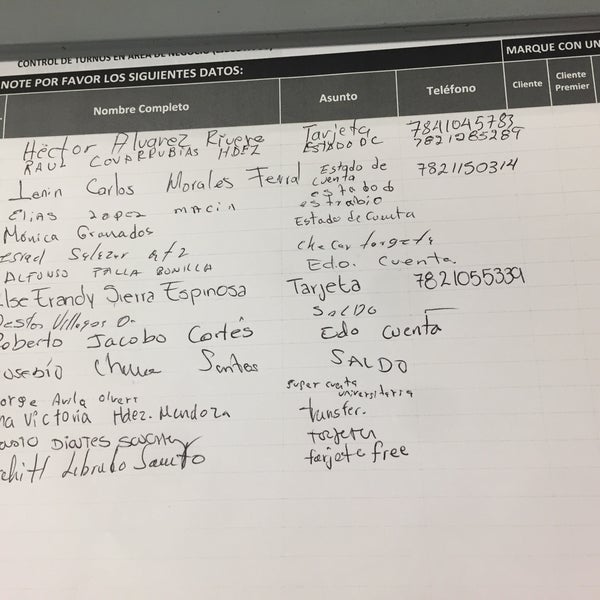 CONTROL DE TURNOS EN ÁREA DE NEGOCIO
NOTE POR FAVOR LOS SIGUIENTES DATOS: MARQUE CON UN
Nombre Completo Asunto Teléfono Cliente Cliente Premier
Héctor Alvarez Rivera Tarjeta 7841045783
RAUL COVARRUBIAS HDEZ ESTADO DC 7821285289
Lenin Carlos Morales Ferral Estado de cuenta 7821150314
ELIAS LOPEZ MACIN estado d
Mónica Granados Estado de Cuenta
Salazar Checar
ALFONSO BONILLA Edo. Cuenta.
Else Erandy Sierra Espinosa Tarjeta 7821055339
Villegas SALDO
Roberto Jacobo Cortés Edo cuenta
Santes SALDO
orge Avila Olvera super cuenta universitaria
na Victoria Hdez. Mendoza transfer.
tarjeta
tarjeta free